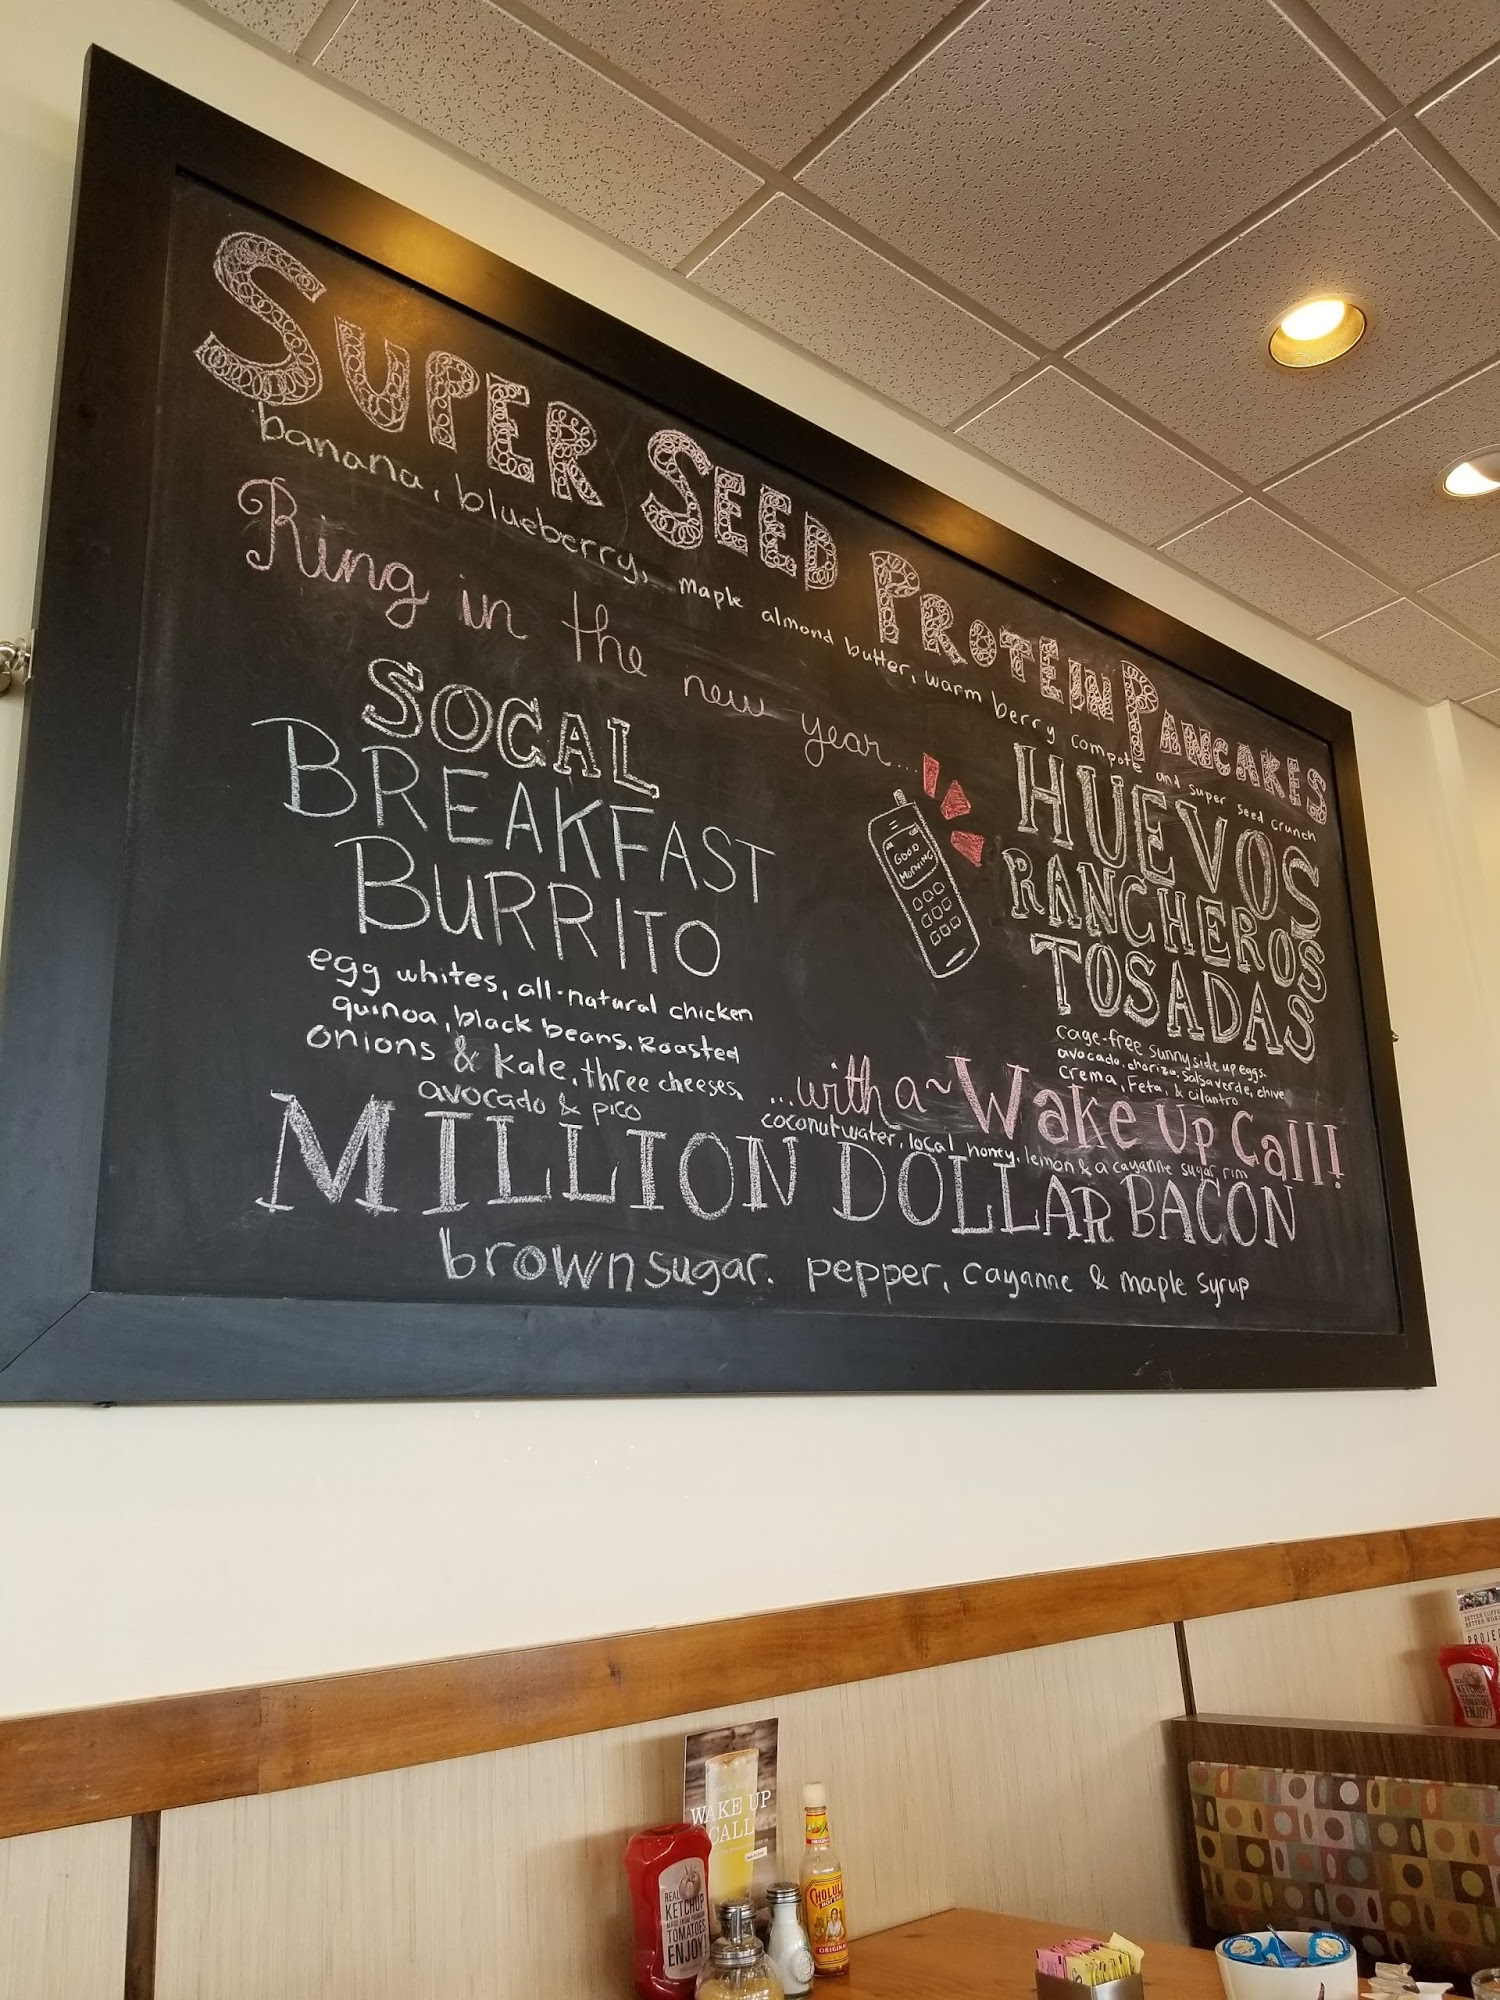 SUPER SEED PROTEIN PANCAKES
banana, blueberry, maple almond butter, warm berry compote and super seed crunch
Ring in the new year...
SOCAL
BREAKFAST
BURRITO
egg whites, all-natural chicken
quinoa, black beans. Roasted
onions & kale, three cheeses,
avocado & pico
GOOD
MORNING
HUEVOS
RANCHEROS
TOSADAS
cage-free sunny side up eggs.
avocado, chorizo, salsa verde, chive
crema, Feta, & cilantro
...with a ~ Wake up Call!
coconut water, local honey, lemon & a cayanne sugar rim
MILLION DOLLAR BACON
brown sugar. pepper, cayanne & maple syrup
WAKE UP
CALL
REAL
KETCHUP
TOMATOES
ENJOY!
CHOLULA
ORIGINAL
REAL
KETCHUP
TOMATOES
ENJOY!